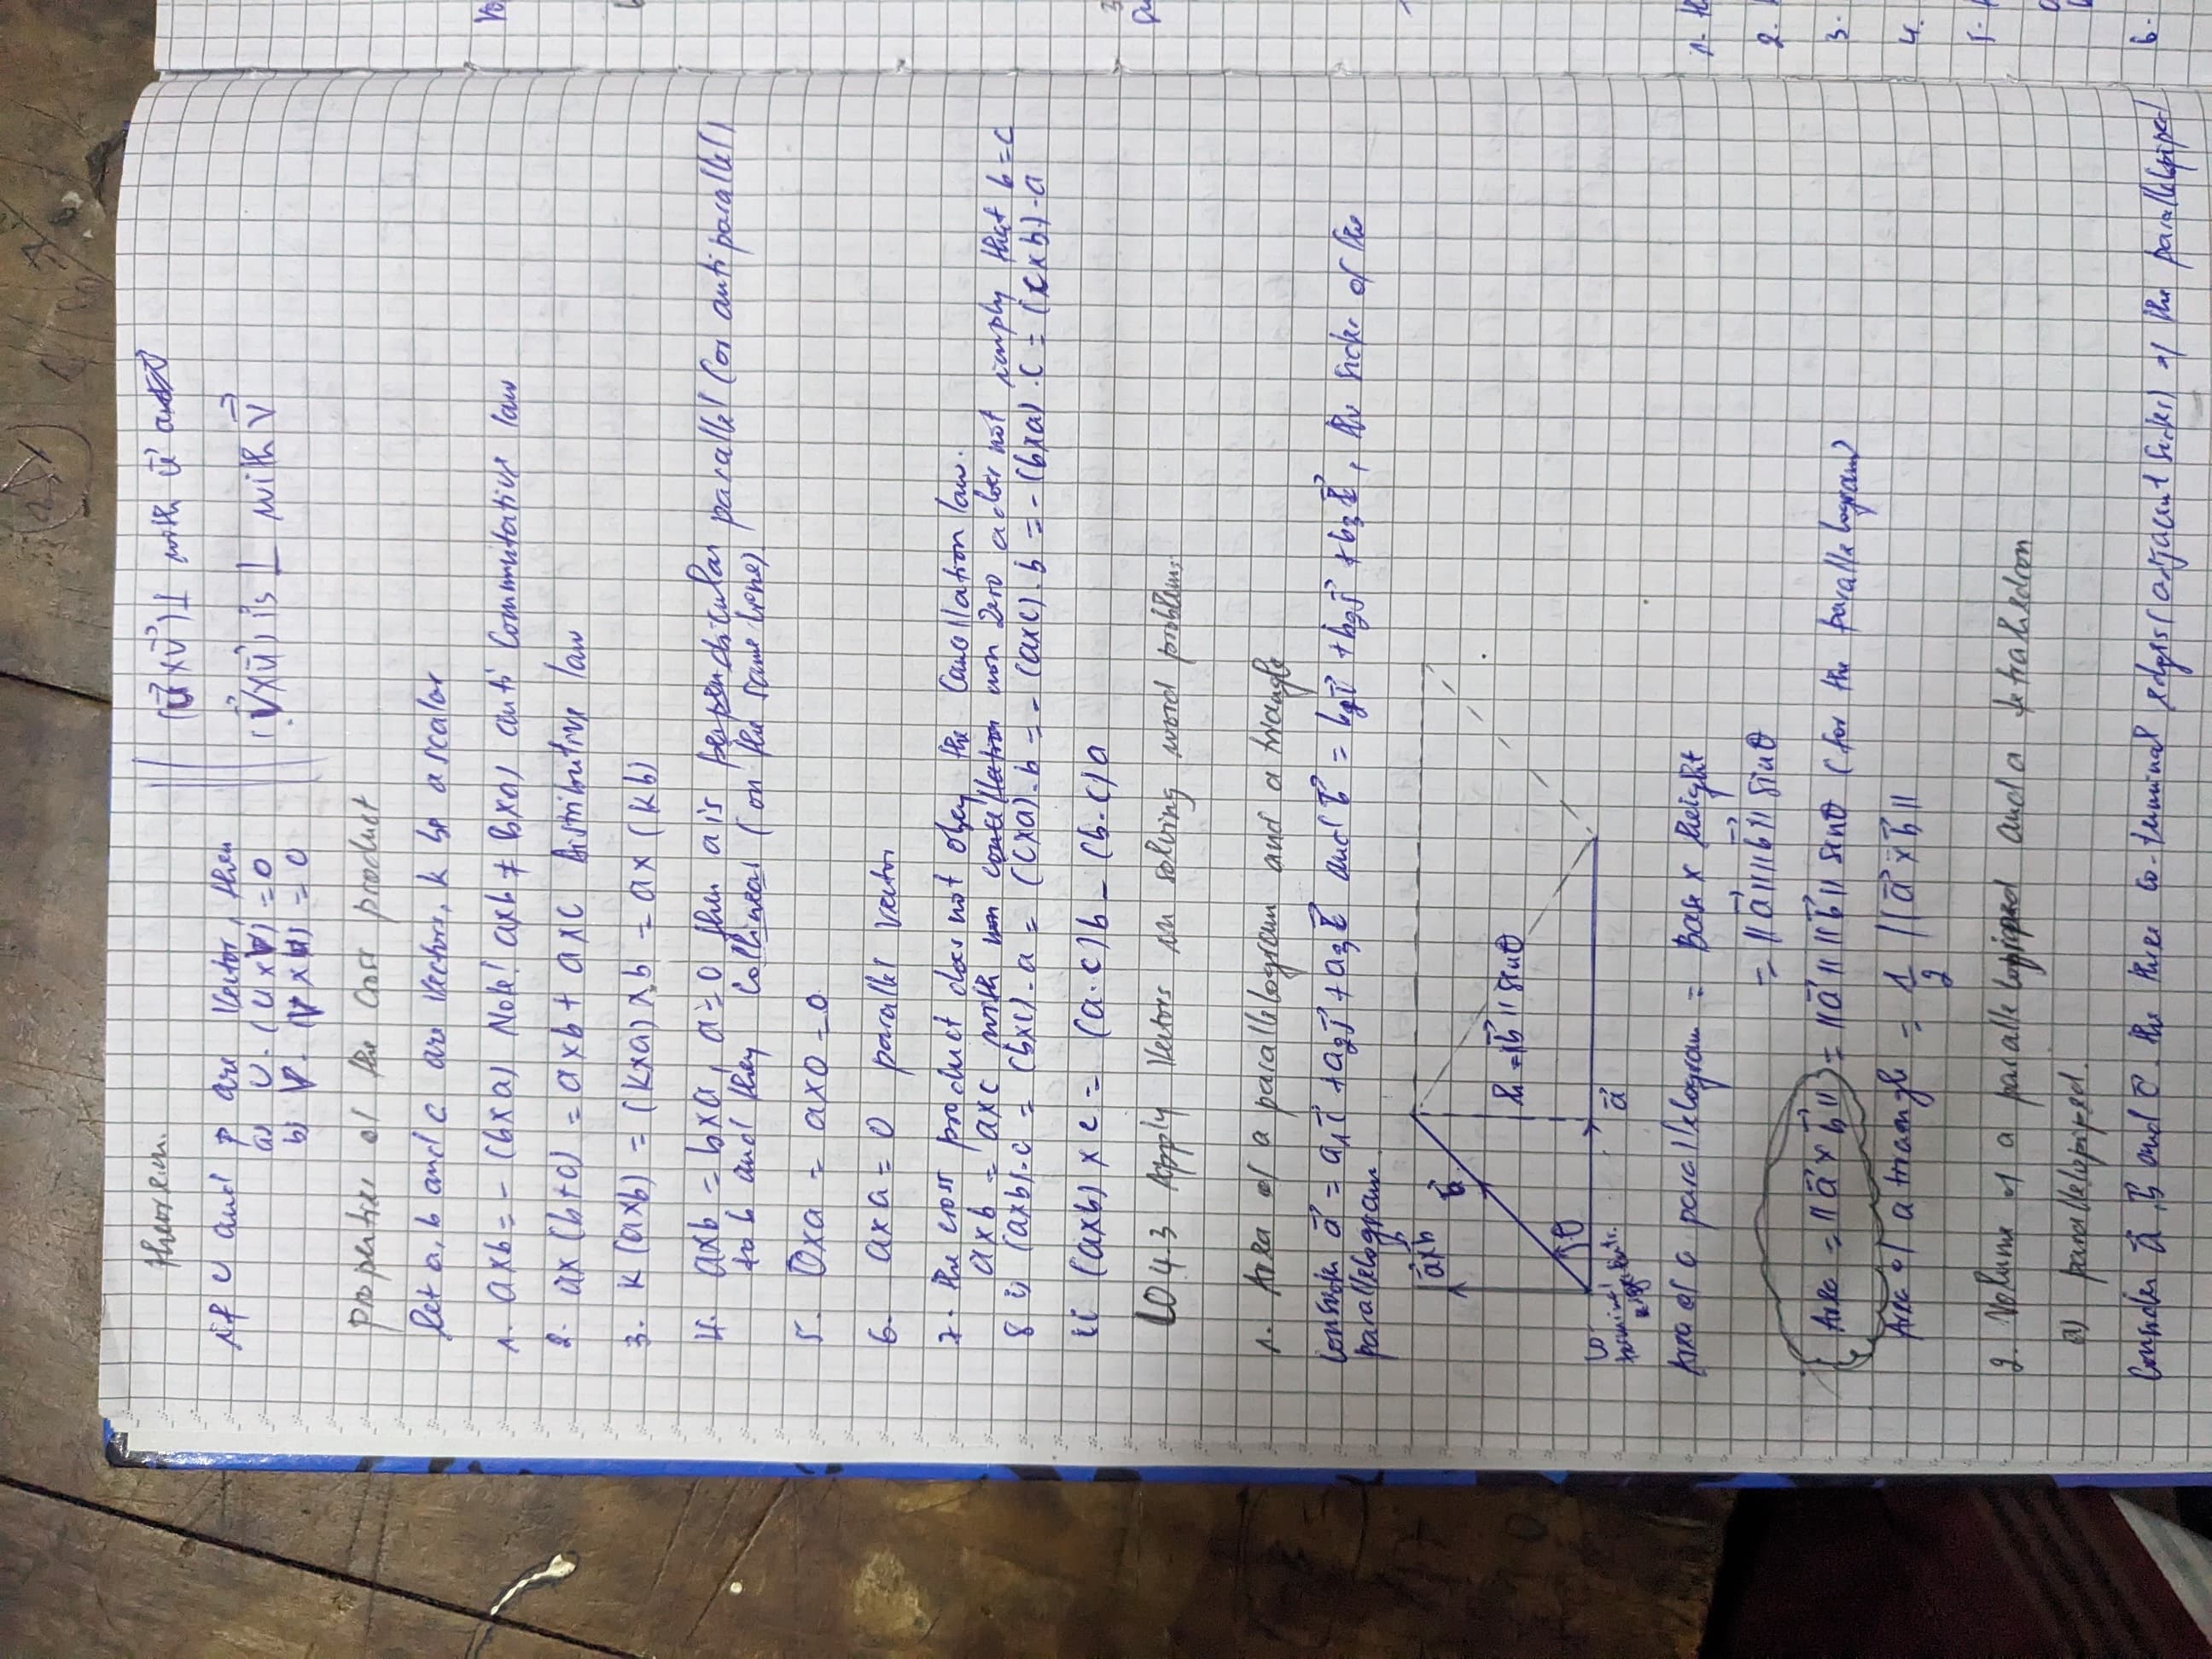 theorem.
(u⃗xv⃗)⊥ with u⃗ and v⃗
If u and v are vector, then
a) u.(u x v) = 0
(v⃗xu⃗) is ⊥ with v⃗
b) v.(v x u) = 0
properties of the cross product
let a, b and c are vectors, k be a scalar
1. axb = -(bxa) Note! axb ≠ bxa) anti commutative law
2. ax(b+c) = axb + axc distributive law
3. k(axb) = (kxa)xb = ax(kb)
4. axb = bxa, a=0 then a is parallel (or anti parallel)
to b and they collinear (on the same line)
5. 0xa = ax0 = 0
6. axa = 0 parallel vector
7. the cross product does not obey the cancellation law.
axb = axc with non zero a does not imply that b=c
8 i) (axb).c = (bxc).a = (cxa).b = -(axc).b = -(bxa).c = (cxb).a
ii (axb)xc = (a.c)b - (b.c)a
LO4.3 Apply vectors in solving word problems.
1. Area of a parallelogram and a triangle
Consider a⃗ = a1i⃗ + a2j⃗ + a3k⃗ and b⃗ = b1i⃗ + b2j⃗ + b3k⃗, the sides of the
parallelogram.
axb
b⃗
h = ||b⃗|| sinθ
θ
a⃗
Area of a parallelogram = Base x height
= ||a⃗|| ||b⃗|| sinθ
Area = ||a⃗ x b⃗|| = ||a⃗|| ||b⃗|| sinθ (for the parallelogram)
Area of a triangle = 1/2 ||a⃗ x b⃗||
2. Volume of a parallelepiped and a tetrahedron
a) parallelepiped.
Consider a⃗, b⃗ and c⃗ the three co-terminal edges (adjacent sides) of the parallelepiped
1.
2.
3.
4.
5.
6.